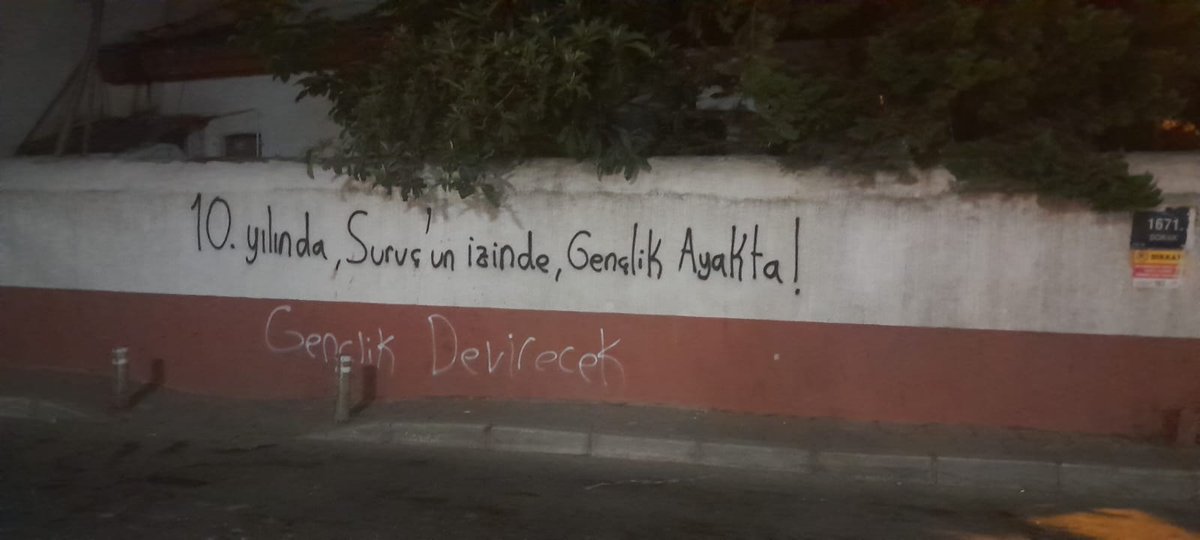 10. yılında, Suruç'un izinde, Gençlik Ayakta!
Gençlik Devirecek
1671.
SOKAK
DİKKAT